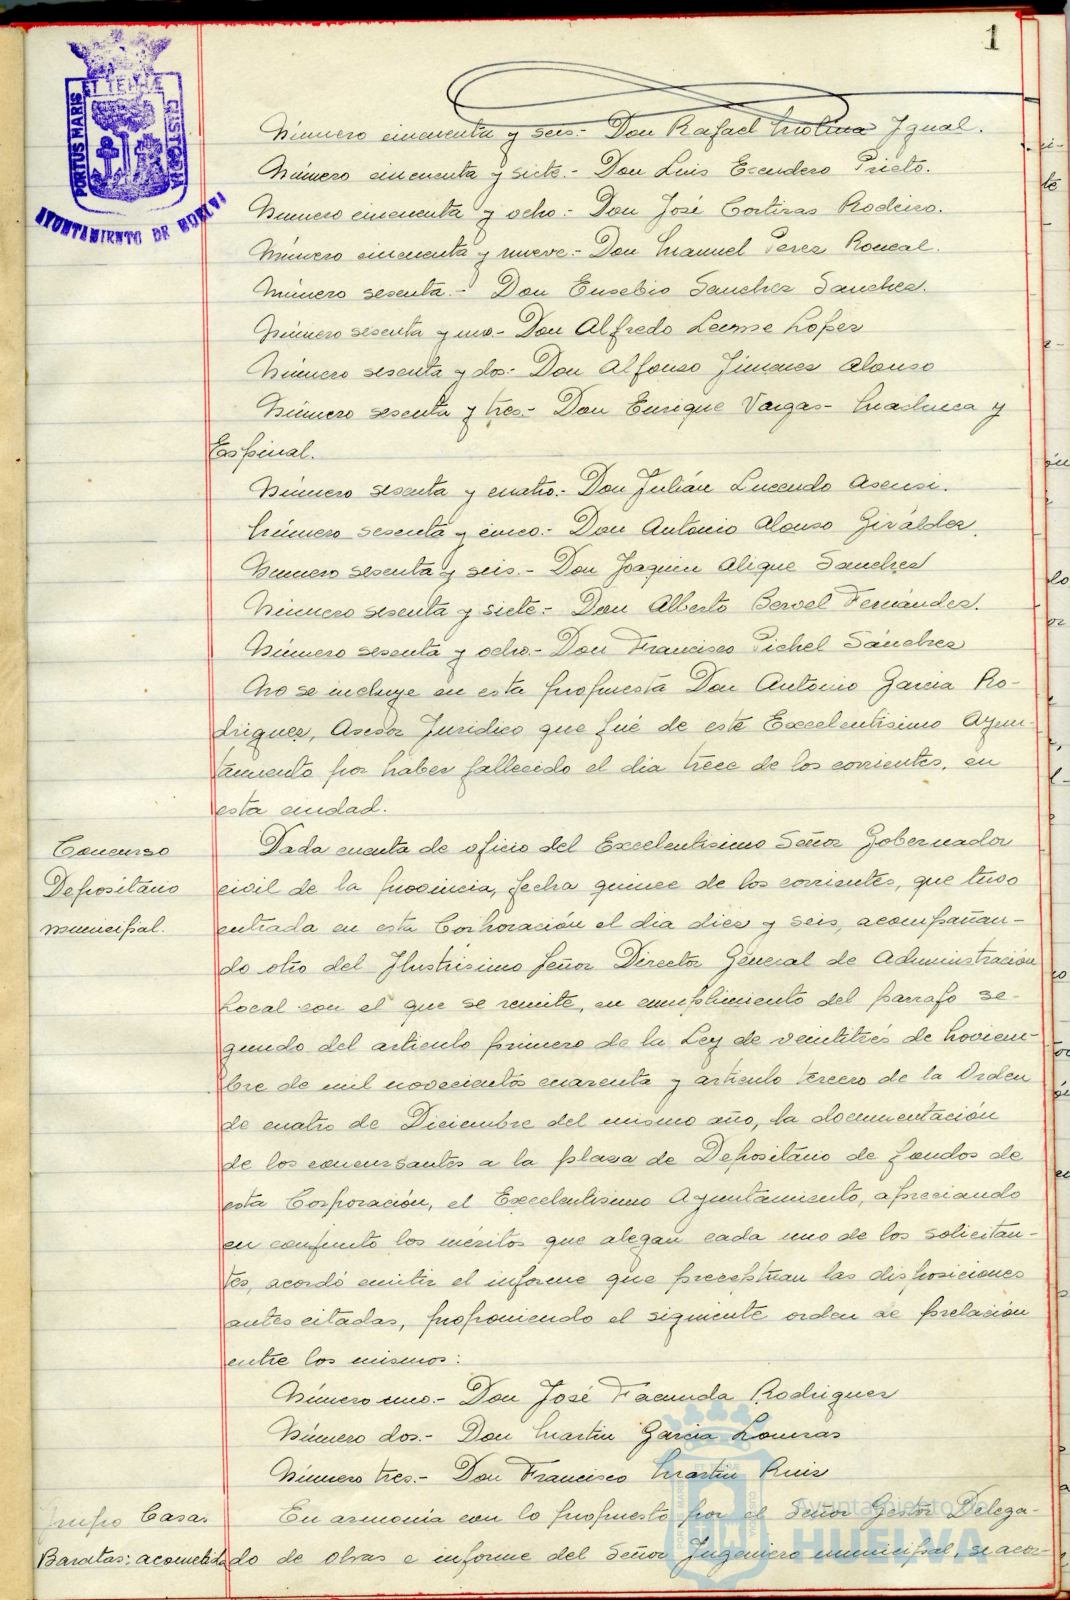 1
PORTUS MARIS ET TERRÆ CUSTODIA
AYUNTAMIENTO DE HUELVA
Número cincuenta y seis.- Don Rafael Molina Igual.
Número cincuenta y siete.- Don Luis Escudero Prieto.
Número cincuenta y ocho.- Don José Cortizas Rodeiro.
Número cincuenta y nueve.- Don Manuel Perez Roncal.
Número sesenta.- Don Eusebio Sanchez Sanchez.
Número sesenta y uno.- Don Alfredo Lopez
Número sesenta y dos.- Don Alfonso Jimenez Alonso
Número sesenta y tres.- Don Enrique Vargas-Machuca y
Espinal.
Número sesenta y cuatro.- Don Julián Lucendo Asensi.
Número sesenta y cinco.- Don Antonio Alonso Giráldez.
Número sesenta y seis.- Don Joaquin Alique Sanchez
Número sesenta y siete.- Don Alberto Bervel Fernández.
Número sesenta y ocho.- Don Francisco Pichel Sánchez
No se incluye en esta propuesta Don Antonio Garcia Ro-
driguez, Asesor Juridico que fué de este Excelentisimo Ayun-
tamiento por haber fallecido el dia trece de los corrientes, en
esta ciudad.
Concurso
Depositario
municipal.
Dada cuenta de oficio del Excelentisimo Señor Gobernador
civil de la provincia, fecha quince de los corrientes, que tuvo
entrada en esta Corporación el dia diez y seis, acompañan-
do otro del Ilustrisimo Señor Director General de Administración
Local con el que se remite, en cumplimiento del parrafo se-
gundo del articulo primero de la Ley de veintitrés de Noviem-
bre de mil novecientos cuarenta y articulo tercero de la Orden
de cuatro de Diciembre del mismo año, la documentación
de los concursantes a la plaza de Depositario de fondos de
esta Corporación, el Excelentisimo Ayuntamiento, apreciando
en conjunto los méritos que alegan cada uno de los solicitan-
tes, acordó emitir el informe que preceptúan las disposiciones
antes citadas, proponiendo el siguiente orden de prelación
entre los mismos:
Número uno.- Don José Facunda Rodriguez
Número dos.- Don Martin Garcia Lomas
Número tres.- Don Francisco Martin Ruiz
Grupo Casas
Baratas: acometida
En armonia con lo propuesto por el Señor Gestor Delega-
do de Obras e informe del Señor Ingeniero municipal, se acor-
Ayuntamiento de
HUELVA